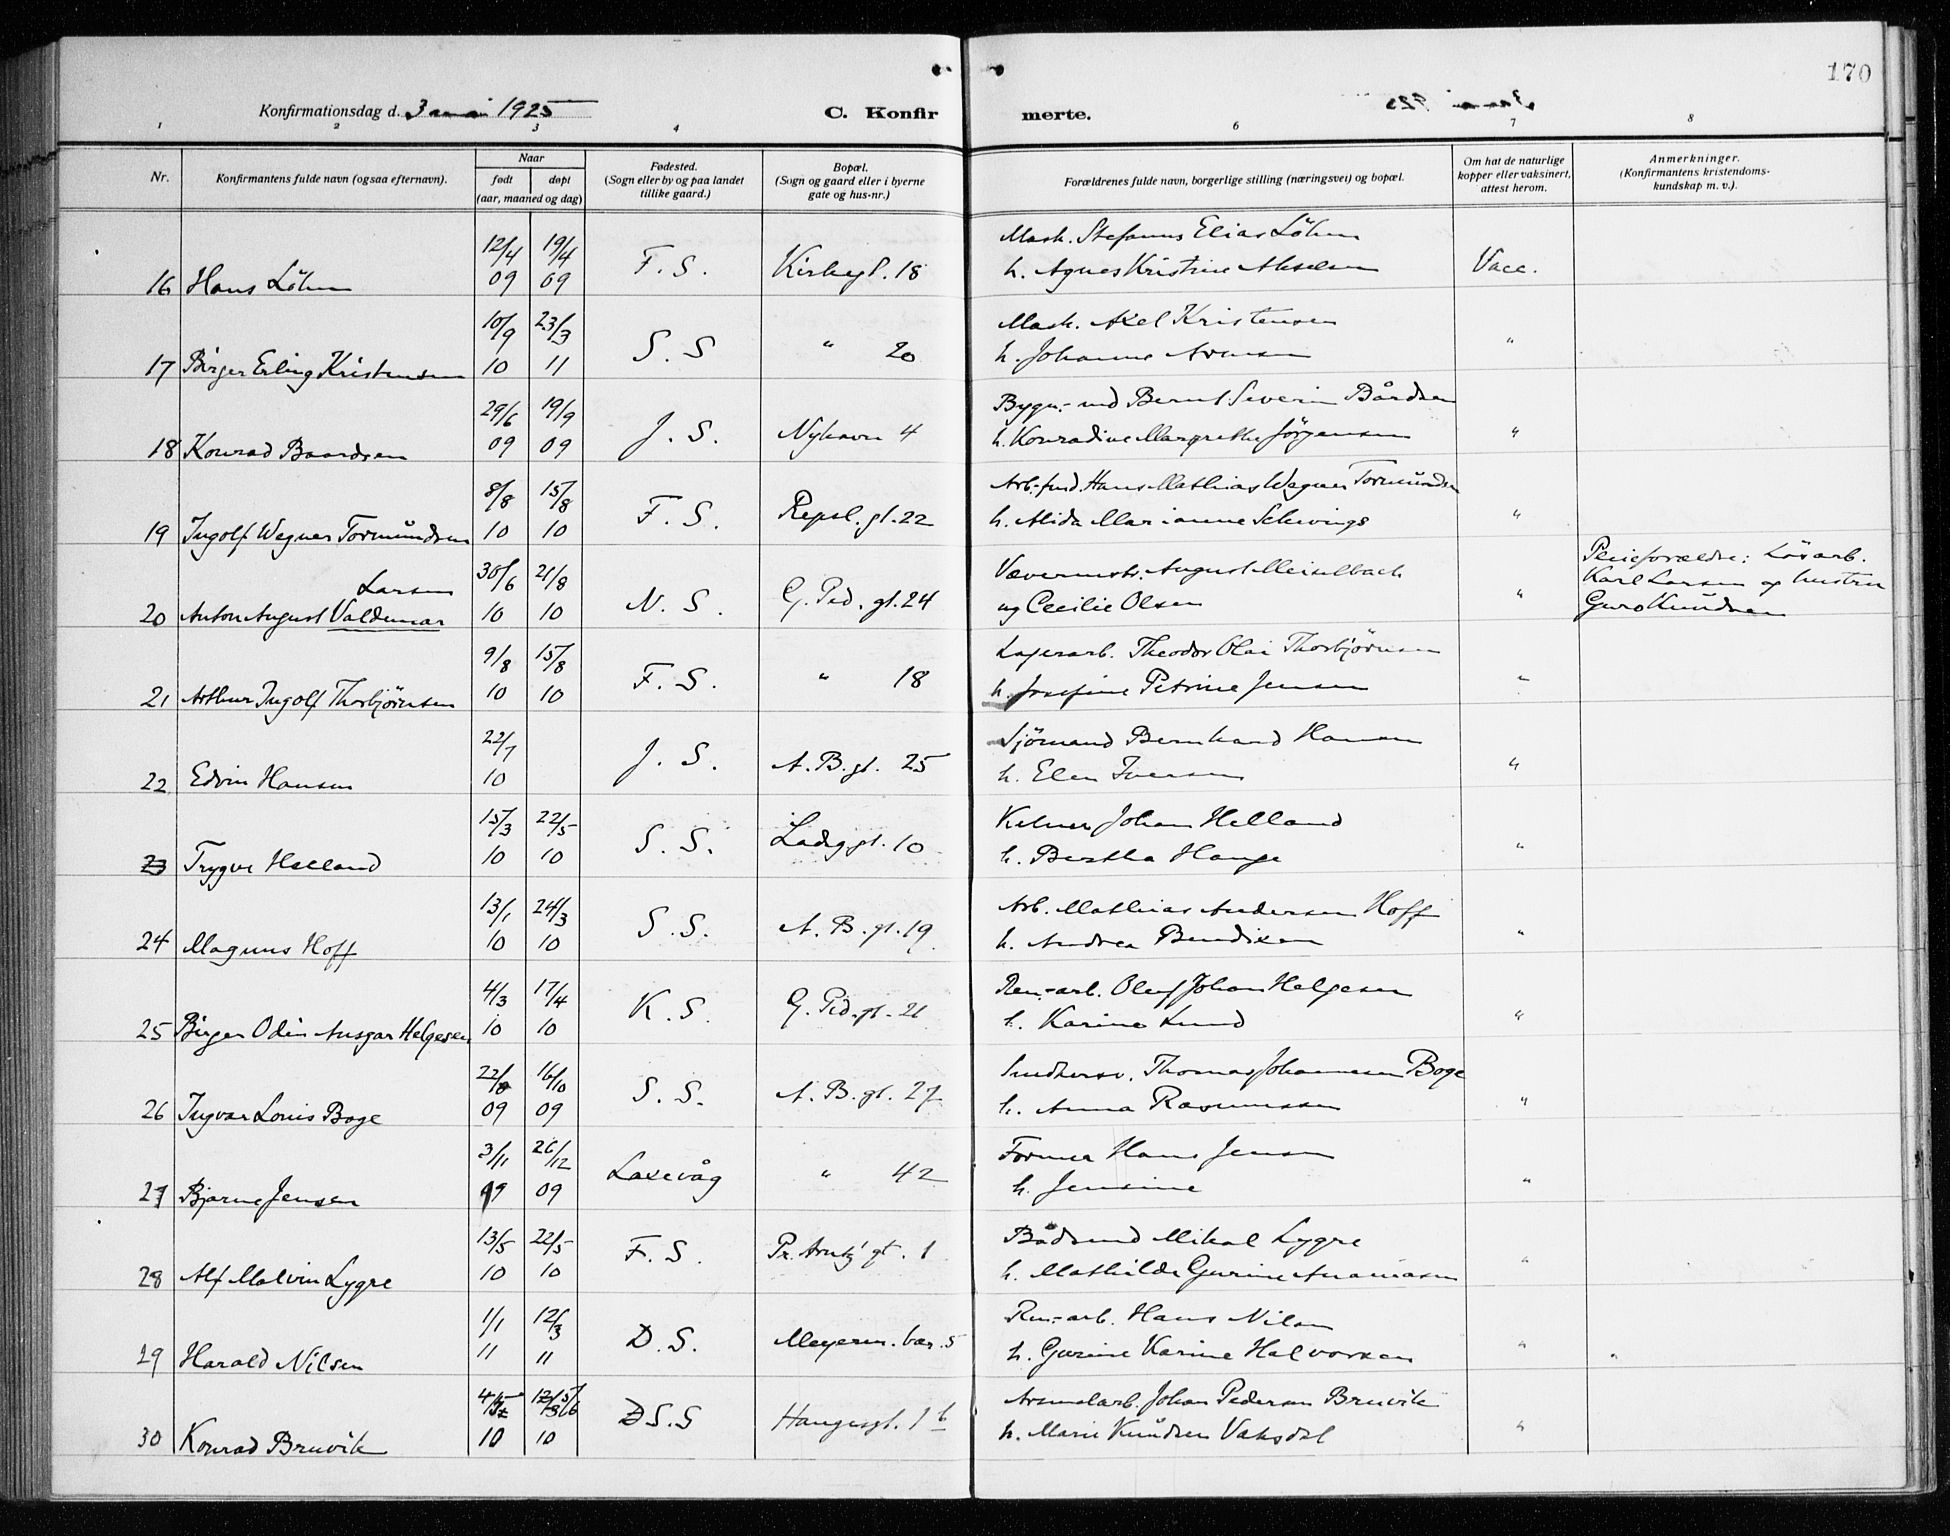 170
Konfirmationsdag d. 3 mai 1925
C. Konfirmerte.
1 2 3 4 5 6 7 8
Nr.
Konfirmantens fulde navn (ogsaa efternavn).
Naar
født døpt
(aar, maaned og dag)
Fødested.
(Sogn eller by og paa landet
tillike gaard.)
Bopæl.
(Sogn og gaard eller i byerne
gate og hus-nr.)
Forældrenes fulde navn, borgerlige stilling (næringsvei) og bopæl.
Om hat de naturlige
kopper eller vaksinert,
attest herom.
Anmerkninger.
(Konfirmantens kristendoms-
kundskap m. v.).
12/4 19/4 Mask. Stefanus Elias Löhm
16 Hans Löhm 09 09 F. S. Kirkegt. 18 h. Agnes Kristine Akselsen Vacc.
10/9 23/3 Mask. Axel Kristensen
17 Birger Erling Kristensen 10 11 S. S " 20 h. Johanne Arnesen "
29/6 19/9 Bygn.-md Bernt Severin Bårdsen
18 Konrad Baardsen 09 09 J. S. Nyhavn 4 h. Konradine Margrethe Jörgensen "
8/8 15/8 Arb.-fmd. Hans Mathias Wegner Tormündsen
19 Ingolf Wegner Tormündsen 10 10 F. S. Repsl. gt. 22 h. Alida Marianne Schwings "
Larsen 30/6 21/8 Vævermstr. August Meiselbach
20 Anton August Valdemar 10 10 N. S. G. Ped. gt. 24 og Cecilie Olsen "
Pleieforældre: Lösarb.
Karl Larsen og hustru
Guro Knüdsen
9/8 15/8 Lagerarb. Theodor Olai Thorbjörnsen
21 Arthur Ingolf Thorbjörnsen 10 10 F. S. " 18 h. Josefine Petrine Jensen "
22/7 Sjömand Bernhard Hansen
22 Edvin Hansen 10 J. S. A. B. gt. 25 h. Elen Iversen "
15/3 22/5 Kelner Johan Helland
23 Trygve Helland 10 10 S. S. Ladeg gt. 10 h. Bertha Hauge "
13/1 24/3 Arb. Mathias Andersen Hoff
24 Magnus Hoff 10 10 S. S. A. B. gt. 19 h. Andrea Bendixen "
4/3 17/4 Ren.-arb. Oluf Johan Helgesen
25 Birger Odin Ansgar Helgesen 10 10 K. S. G. Ped. gt. 21 h. Karine Lund "
22/8 16/10 Smedsv. Thomas Johannesen Boge
26 Ingvar Louis Boge 09 09 S. S. A. B. gt. 27 h. Anna Rasmussen "
3/11 26/12 Former Hans Jensen
27 Bjarne Jensen 09 09 Laxevåg " 42 h. Jensine "
13/5 22/5 Bådsmd Mikal Lygre
28 Alf Malvin Lygre 10 10 F. S. Pr. Arntz' gt. 1 h. Mathilde Gurine Ananiasen "
1/1 12/3 Ren.-arb. Hans Nilsen
29 Harald Nilsen 11 11 D. S. Meyerm. bar. 5 h. Gurine Karine Halvorsen "
Arsenalarb. Johan Pedersen Bruvik
30 Konrad Bruvik 10 10 S. S Haugesgt. 1 b h. Marie Knüdsen Vaksdal "